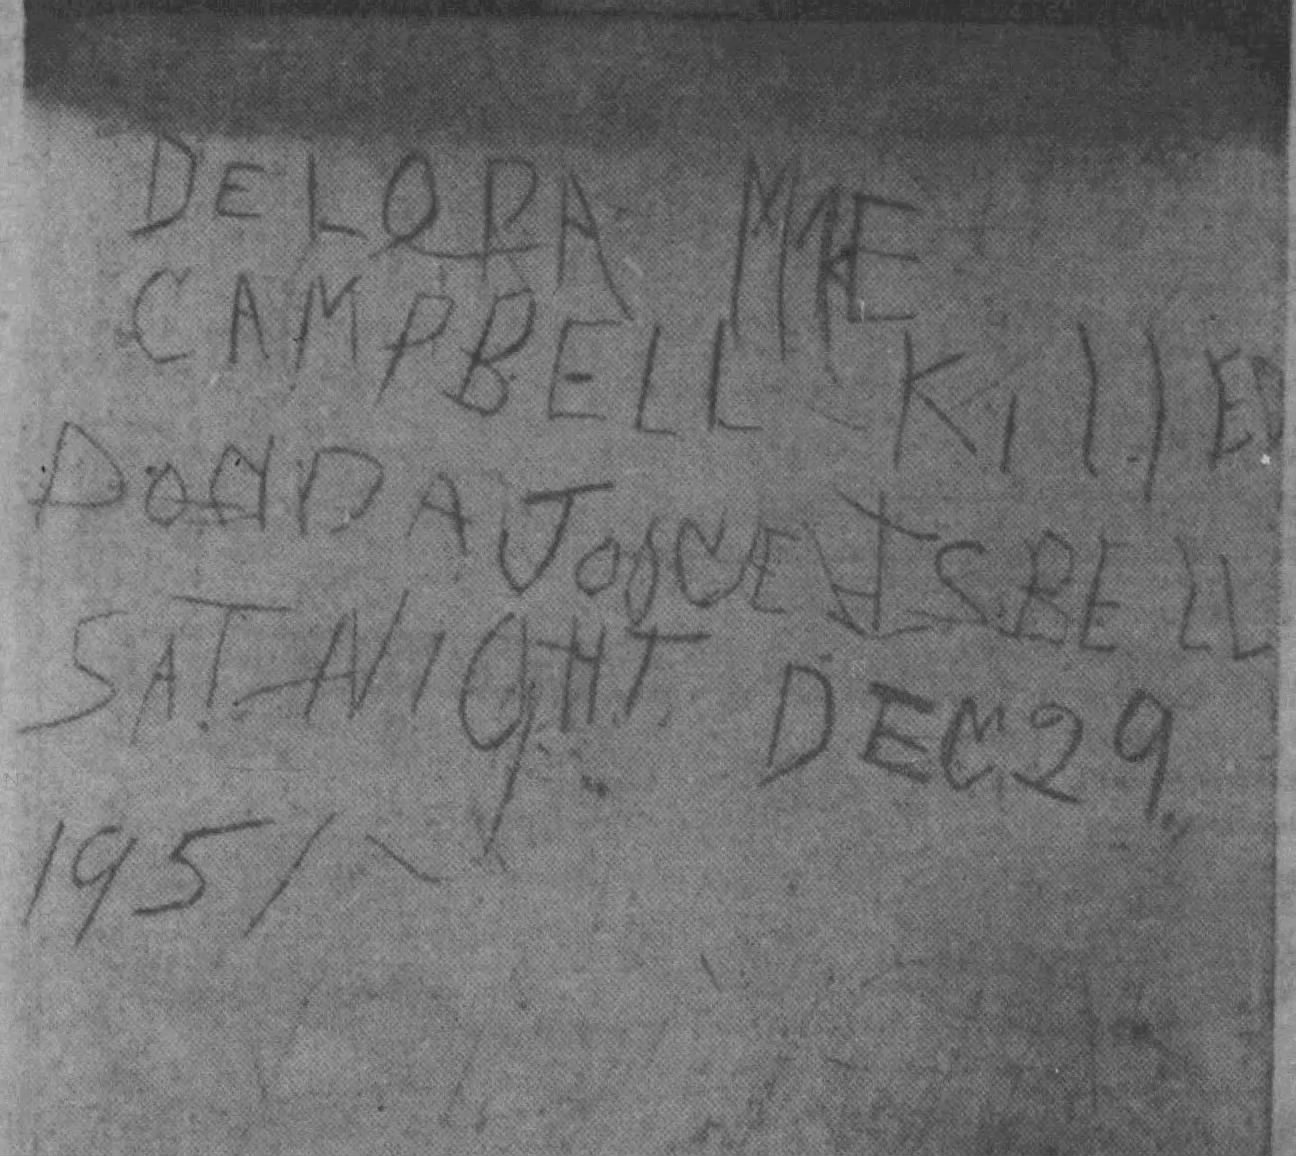 DELORA MAE
CAMPBELL KillED
DONDA JOYCE ISBELL
SAT NIGHT DEC 29
1951